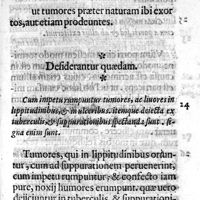 ut tumores præter naturam ibi exor
tos, aut etiam prodeuntes.
*
Desiderantur quædam.
*
Cum impetu rumpuntur tumores, ac liuores in
lippitudinibus, & in ulceribus. itemque deiecta ex
tuberculis & suppurationibus spectanda sunt. Pu
gna enim sunt.
24
Tumores, qui in lippitudinibus oriun
tur, cum ad suppurationem peruenerint,
cum impetu rumpuntur, & confecto iam
pure, noxij humores erumpunt. quæ uero
deijciuntur in tuberculis, & suppurationi-